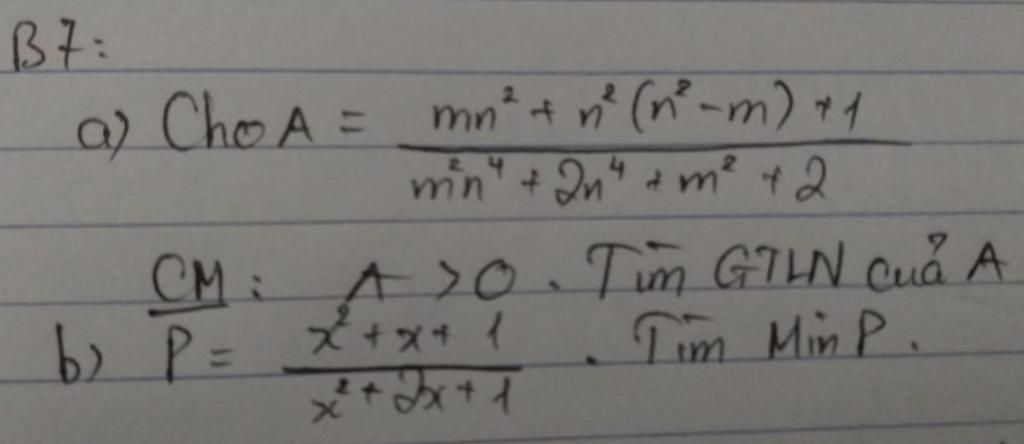 B7:
a) Cho A = \frac{mn² + n²(n² - m) + 1}{m²n⁴ + 2n⁴ + m² + 2}
CM: A > 0. Tìm GTLN của A
b) P = \frac{x² + x + 1}{x² + 2x + 1}. Tìm Min P.